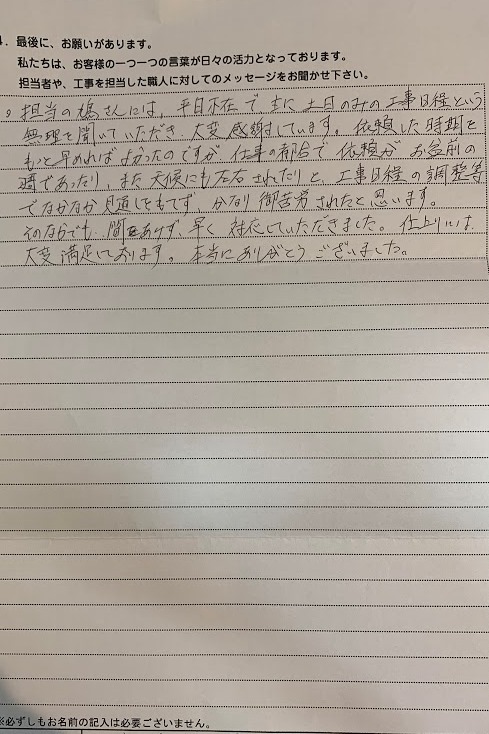 4. 最後に、お願いがあります。
私たちは、お客様の一つ一つの言葉が日々の活力となっております。
担当者や、工事を担当した職人に対してのメッセージをお聞かせ下さい。
担当の さんには、平日不在で、主に土日のみの工事日程という
無理を聞いていただき、大変感謝しています。依頼した時期を
もっと早めればよかったのですが、仕事の都合で依頼がお盆前の
時であったり、また天候にも左右されたりと、工事日程の調整等
でなかなか見通しをもてず、かなり御苦労されたと思います。
そのなかでも、間をあけず、早く対応していただきました。仕上りには
大変満足しております。本当にありがとうございました。
※必ずしもお名前の記入は必要ございません。